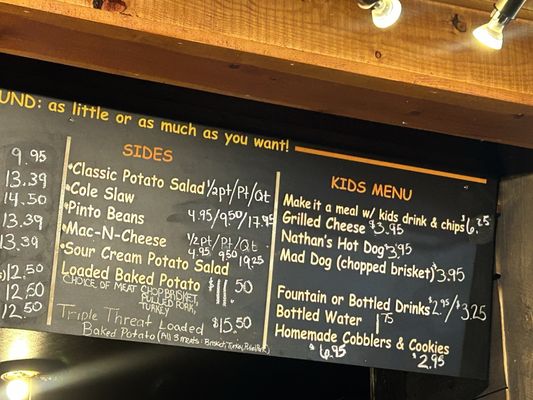 UND: as little or as much as you want!
9.95
13.39
14.50
13.39
13.39
12.50
12.50
12.50
SIDES
•Classic Potato Salad 1/2pt/Pt/Qt
•Cole Slaw
•Pinto Beans 4.95/9.50/17.95
•Mac-N-Cheese 1/2pt/Pt/Qt
•Sour Cream Potato Salad 4.95 9.50 19.25
Loaded Baked Potato $11.50
CHOICE OF MEAT CHOP BRISKET,
PULLED PORK,
TURKEY
Triple Threat Loaded $15.50
Baked Potato (All 3 meats: Brisket, Turkey, Pulled Pork)
KIDS MENU
Make it a meal w/ kids drink & chips $6.25
Grilled Cheese $3.95
Nathan's Hot Dog $3.95
Mad Dog (chopped brisket) $3.95
Fountain or Bottled Drinks $2.95/$3.25
Bottled Water 1.75
Homemade Cobblers & Cookies
$6.95 $2.95